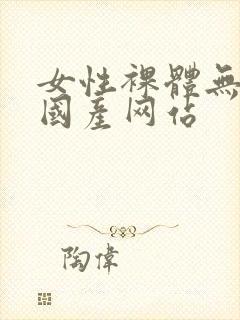 女性裸體無
國產网佔
陶偉